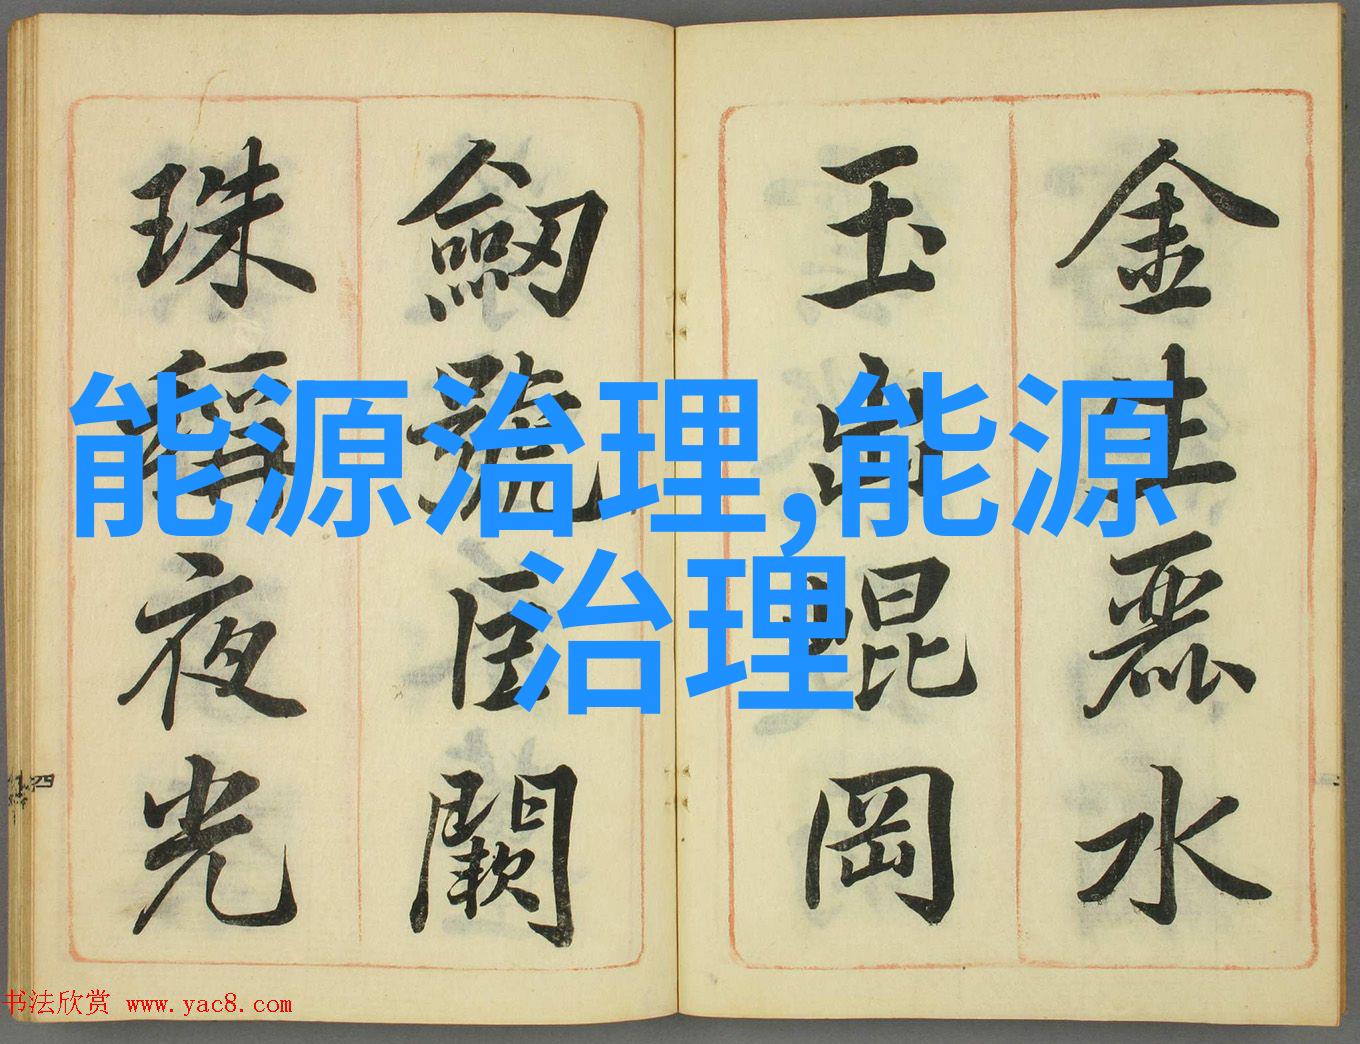 金生麗水
玉出崐岡
劒號巨闕
珠稱夜光
能源治理,能源
治理
书法欣赏 www.yac8.com